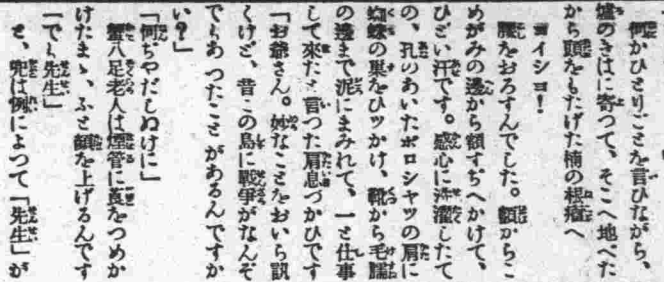 何かひとりごとを言ひながら、
爐のきはに寄つて、そこへ地べた
から頭をもたげた楠の根瘤へ
ヨイショ!
腰をおろすんでした。額からこ
めがみの邊から額すぢへかけて、
ひどい汗です。感心に洗濯したて
の、孔のあいたボロシャツの肩に
蜘蛛の巣をひツかけ、靴から毛臑
の邊まで泥にまみれて、一と仕事
して來たと言つた肩息づかひです
「お爺さん。妙なことをおいら訊
くけど、昔この島に戰爭がなんぞ
でもあつたことがあるんですか
い?」
「何ぢやだしぬけに」
蟹八足老人は煙管に莨をつめか
けたまゝ、ふと顏を上げるんです
「でも先生」
と、兜は例によつて「先生」が